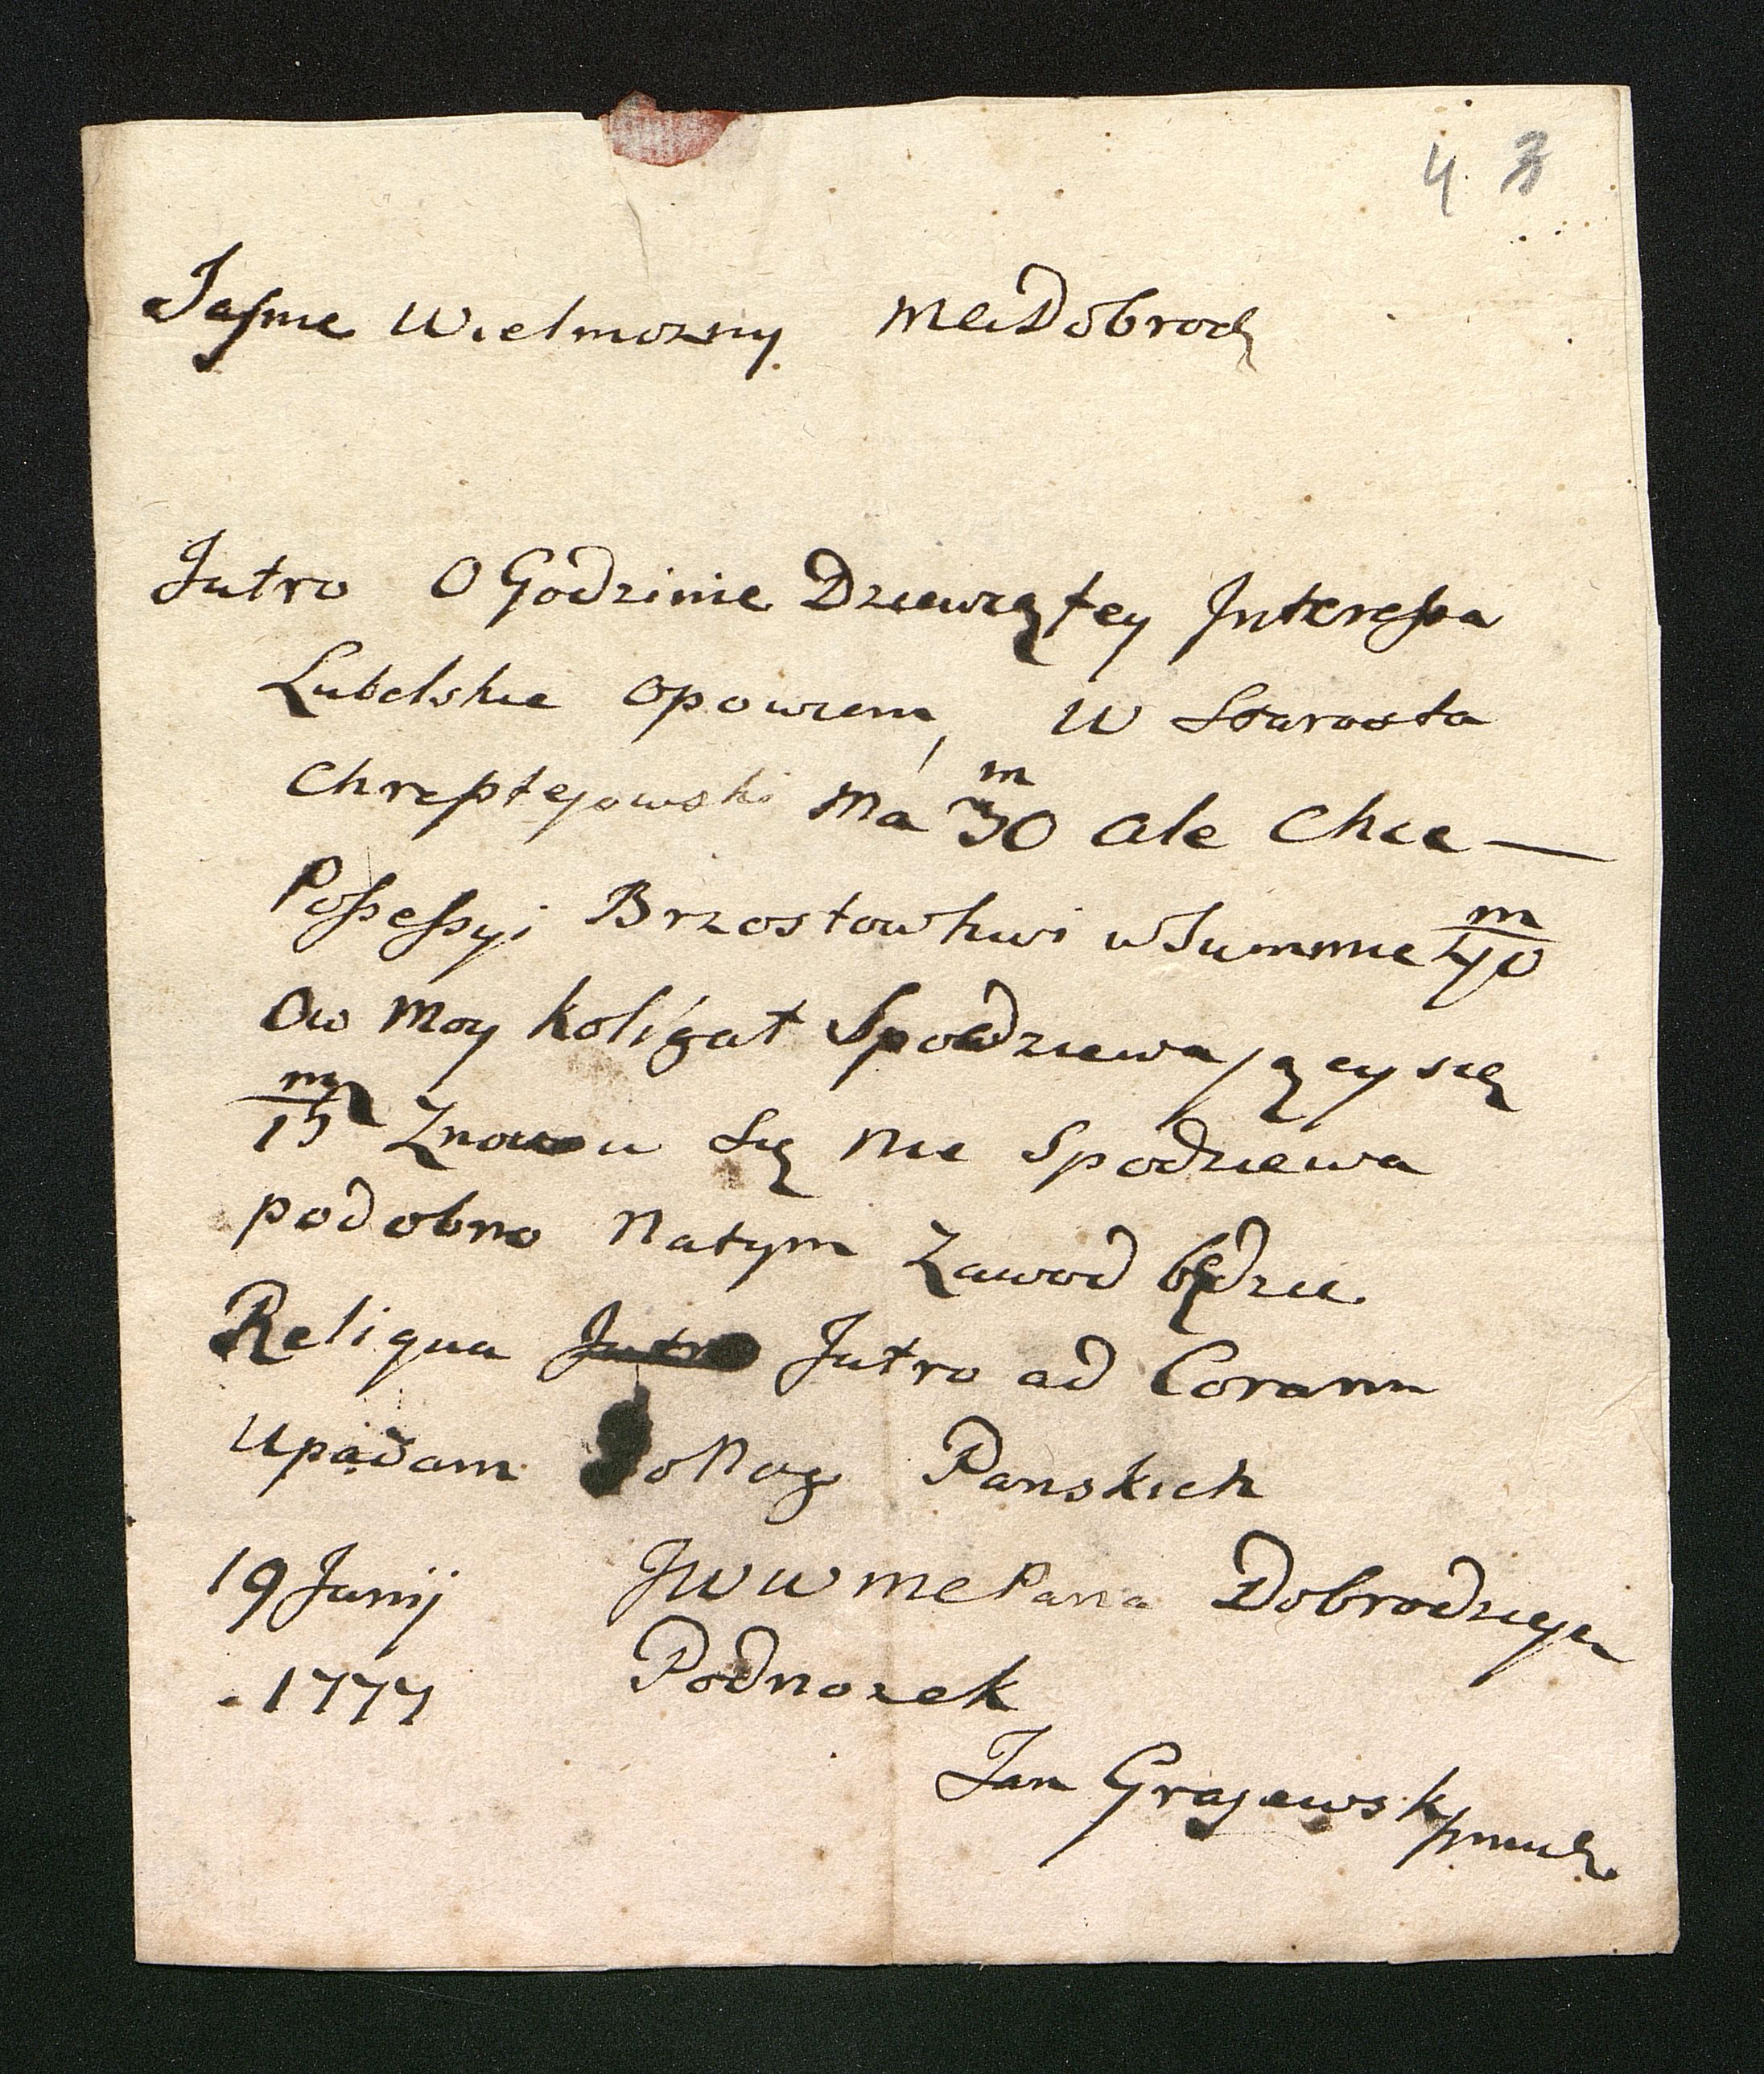 4 3
Jaſnie Wielmozny MCiDobrodz
Jutro O Godzinie Dziewiątey Intereſsa
Lubelskie opowiem, W Starosta
Chreptyjowski Má m 30 ale Chce —
Poſseſsyi Brzostowkwi w Summie m 40
Ow Moy koligat Spodziewający się
m 15 Znowu Się Nie Spodziewa
podobno Natym Zawod będzie
Reliqua Jutro Jutro ad Coram
Upadam do Nog Panskich
19 Junij JWWMCPana Dobrodzieja
1777 Podnozek
Jan Grajewski